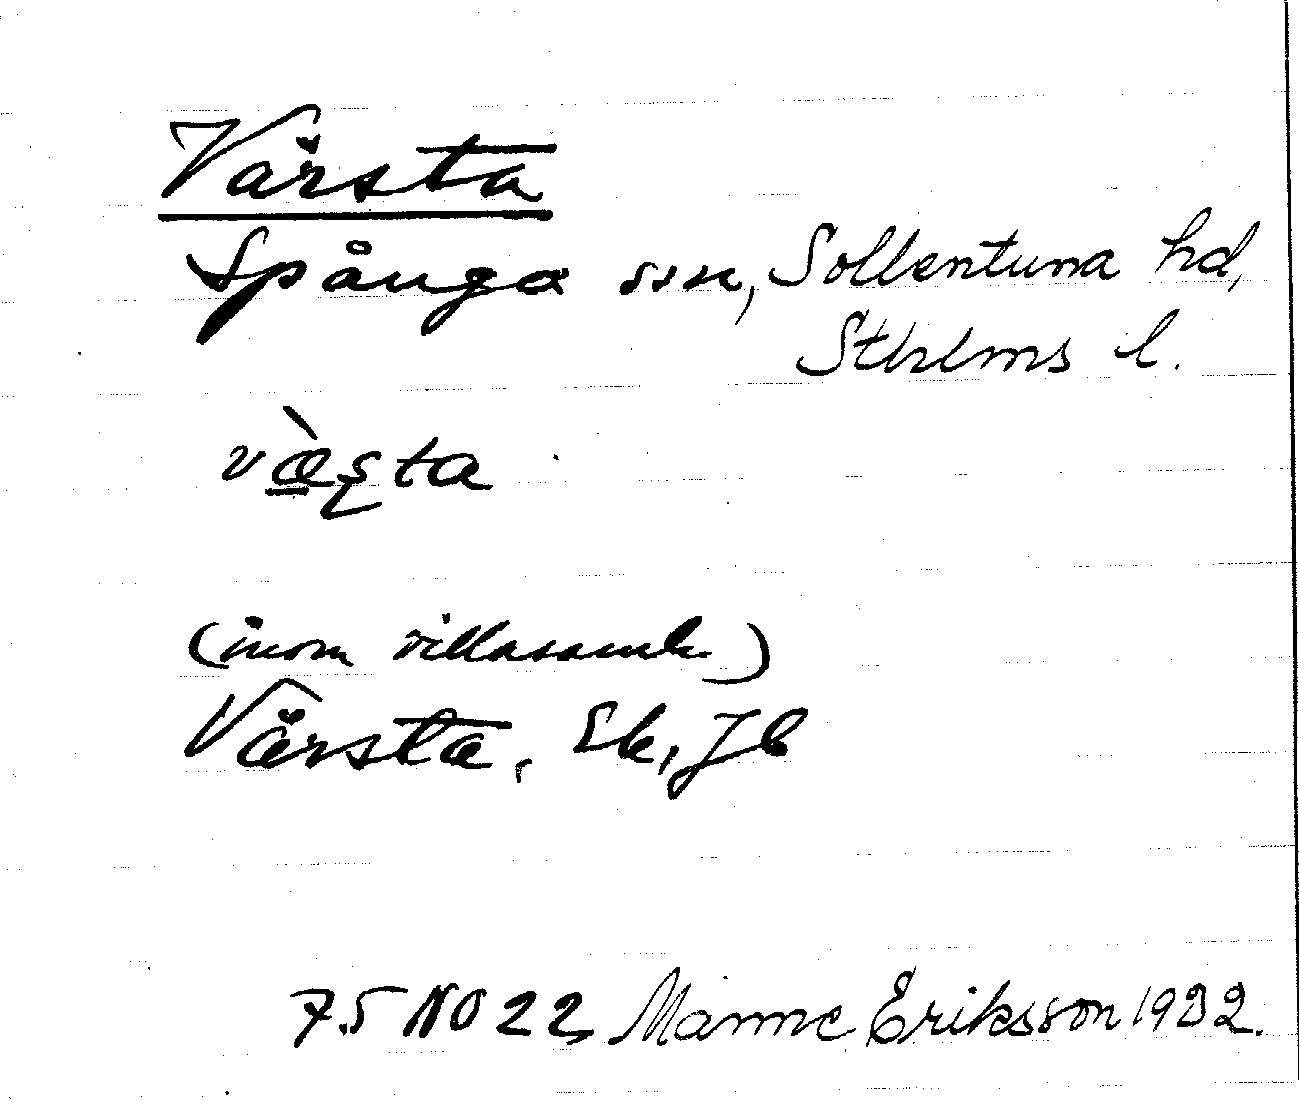 Värsta
Spånga ssn, Sollentuna hd,
Sthlms l.
væ̀ʂta
(inom villasamh.)
Värsta, Ek, Jb
75 NO 22 Manne Eriksson 1932.